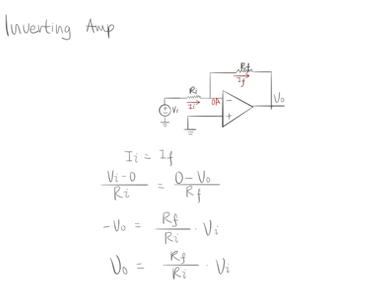 Inverting Amp
Rf
If
Ri
Ii
0A
Vi
Vo
Ii = If
Vi-0/Ri = 0-Vo/Rf
-Vo = Rf/Ri · Vi
Vo = Rf/Ri · Vi